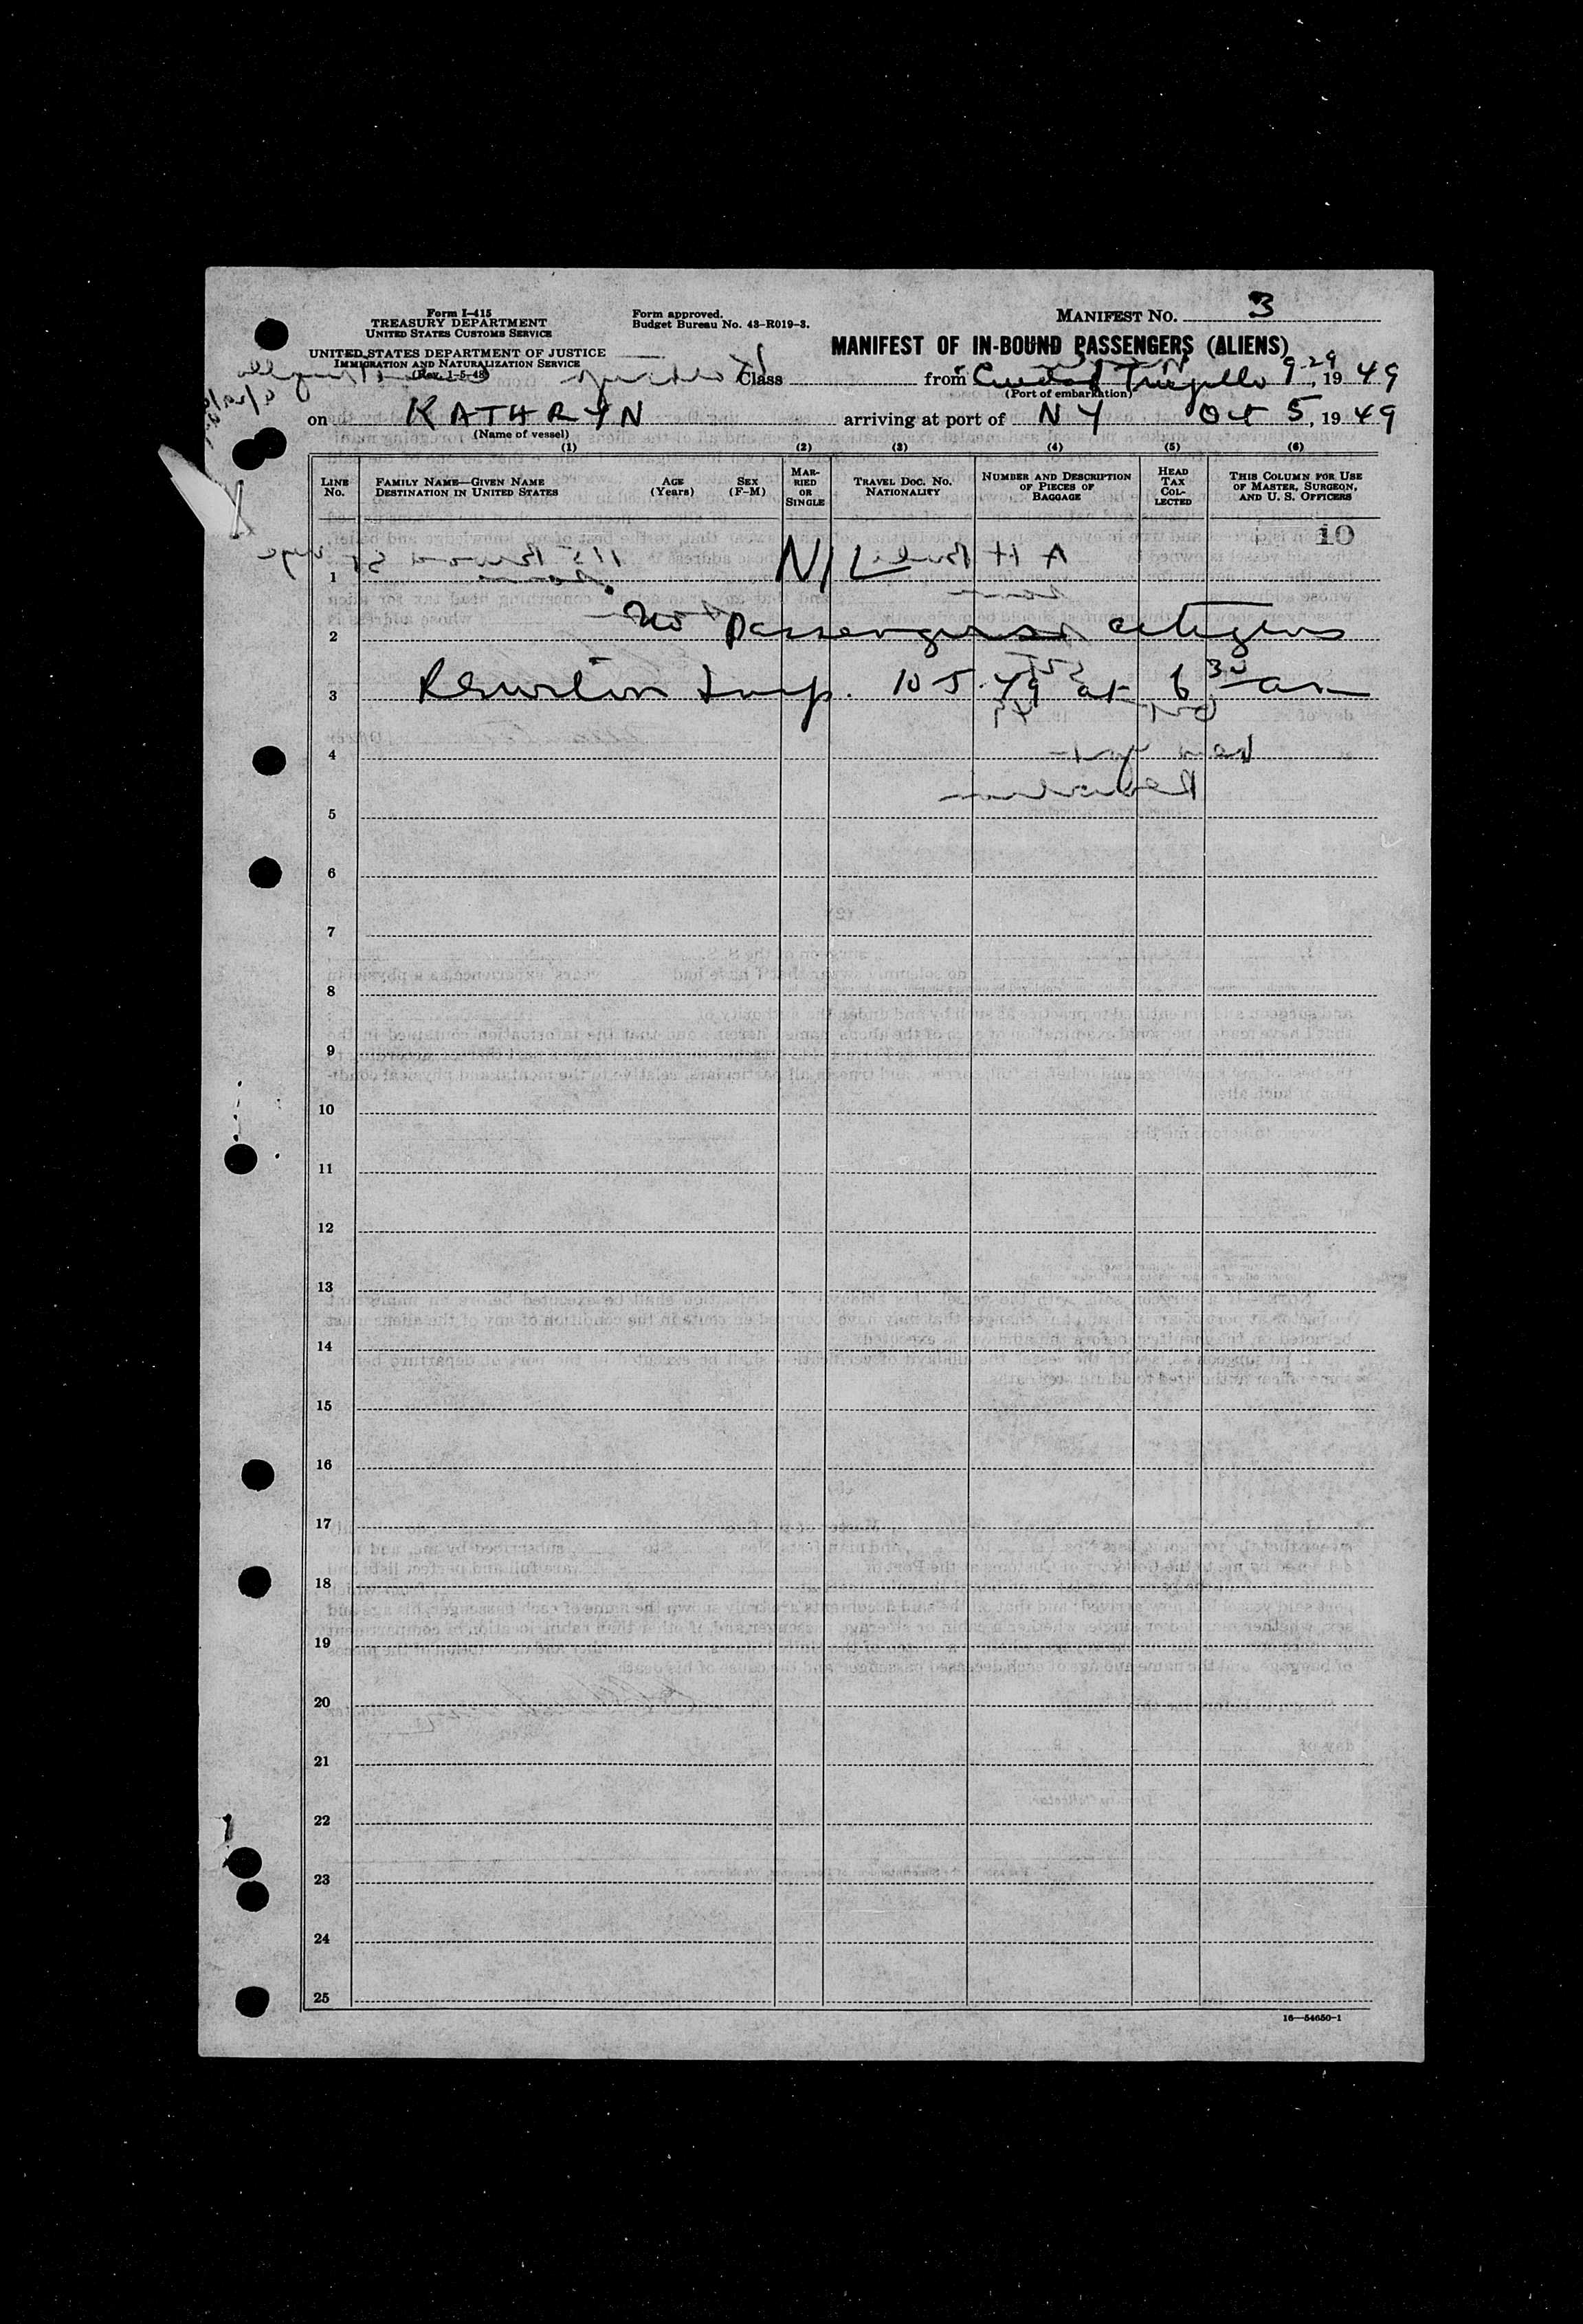 Form I-415
TREASURY DEPARTMENT
UNITED STATES CUSTOMS SERVICE
UNITED STATES DEPARTMENT OF JUSTICE
IMMIGRATION AND NATURALIZATION SERVICE
(Rev. 1-5-48)
Form approved.
Budget Bureau No. 43-R019-3.
MANIFEST NO. 3
MANIFEST OF IN-BOUND PASSENGERS (ALIENS)
Class from Ciudad Trujillo 9-29, 1949
(Port of embarkation)
on KATHRYN arriving at port of NY Oct 5, 1949
(Name of vessel)
(1) (2) (3) (4) (5) (6)
LINE No. FAMILY NAME—GIVEN NAME DESTINATION IN UNITED STATES AGE (Years) SEX (F-M) MARRIED OR SINGLE TRAVEL DOC. NO. NATIONALITY NUMBER AND DESCRIPTION OF PIECES OF BAGGAGE HEAD TAX COLLECTED THIS COLUMN FOR USE OF MASTER, SURGEON, AND U. S. OFFICERS
10
1 NIL
2 No passengers citizens
3 Insp. 10 5. 49 at 6 30 am
4
5
6
7
8
9
10
11
12
13
14
15
16
17
18
19
20
21
22
23
24
25
16—54650-1